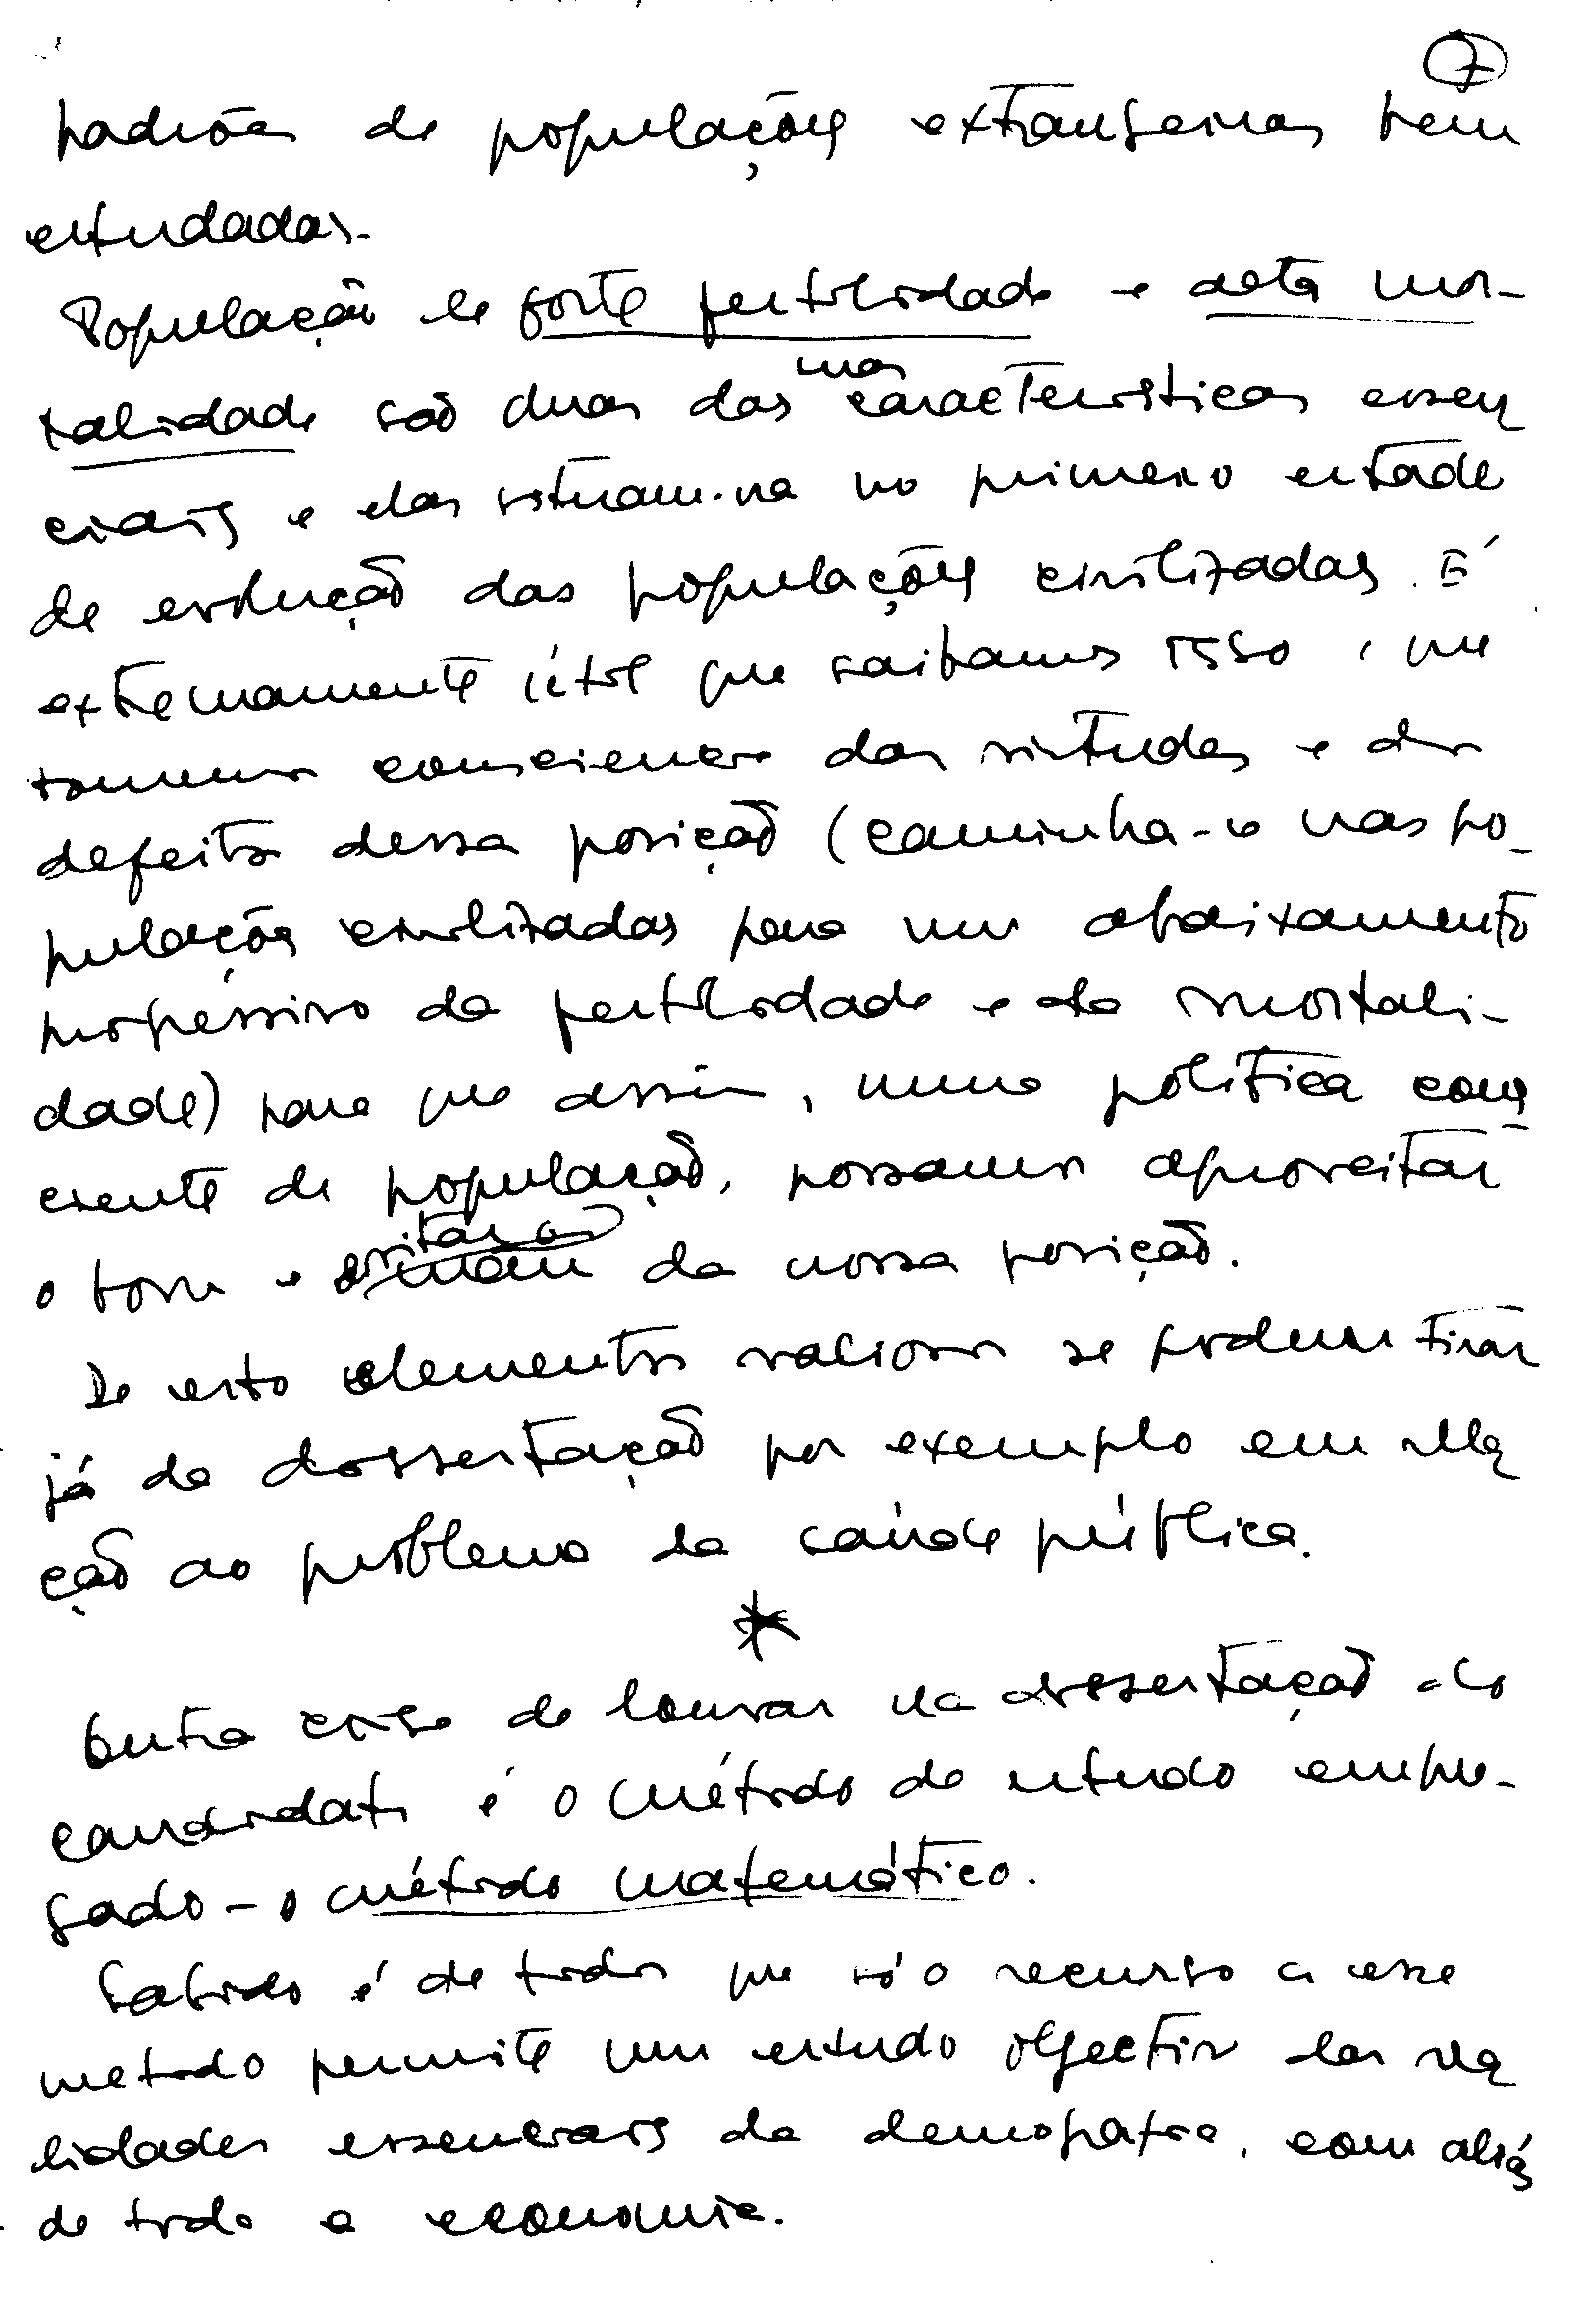 7
padrões de populações extrangeiras bem
estudadas.
População de forte fertilidade e alta mor-
talidade são duas das suas características essen
ciais e elas situam-na no primeiro estade
de evolução das populações civilizadas. É
extremamente útil que saibamos isso, que
tomemos consciencia das virtudes e dos
defeitos dessa posição (caminha-se nas po-
pulações civilizadas para um abaixamento
progressivo da fertilidade e da mortali-
dade) para que assim, numa política cons
ciente de população, possamos aproveitar
o bom e evitar o da nossa posição.
De certo elementos valiosos se podem tirar
já da dissertação por exemplo em rela
ção ao problema da saúde pública.
*
Outra coisa de louvar na dissertação do
candidato é o método de estudo empre-
gado - o método matemático.
Sabido é de todos que só o recurso a esse
metodo permite um estudo objectivo das rea
lidades essenciais da demografia, com aliás
de toda a economia.